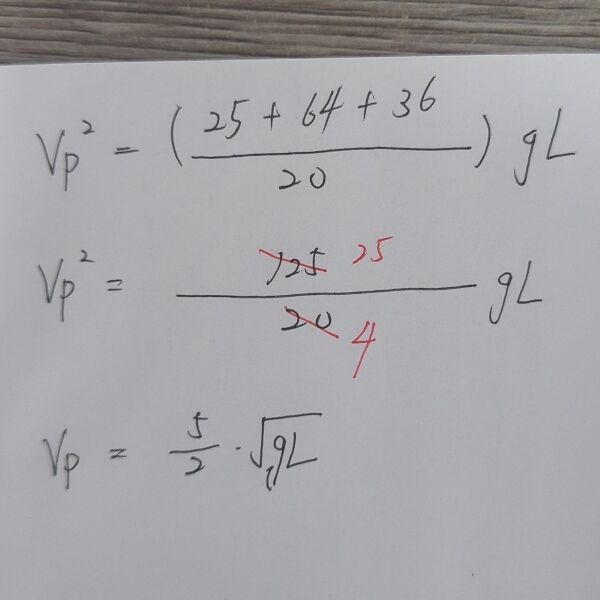 Vp² = ( (25 + 64 + 36) / 20 ) gL
Vp² = 125 25 / 20 4 gL
Vp = 5/2 · √gL